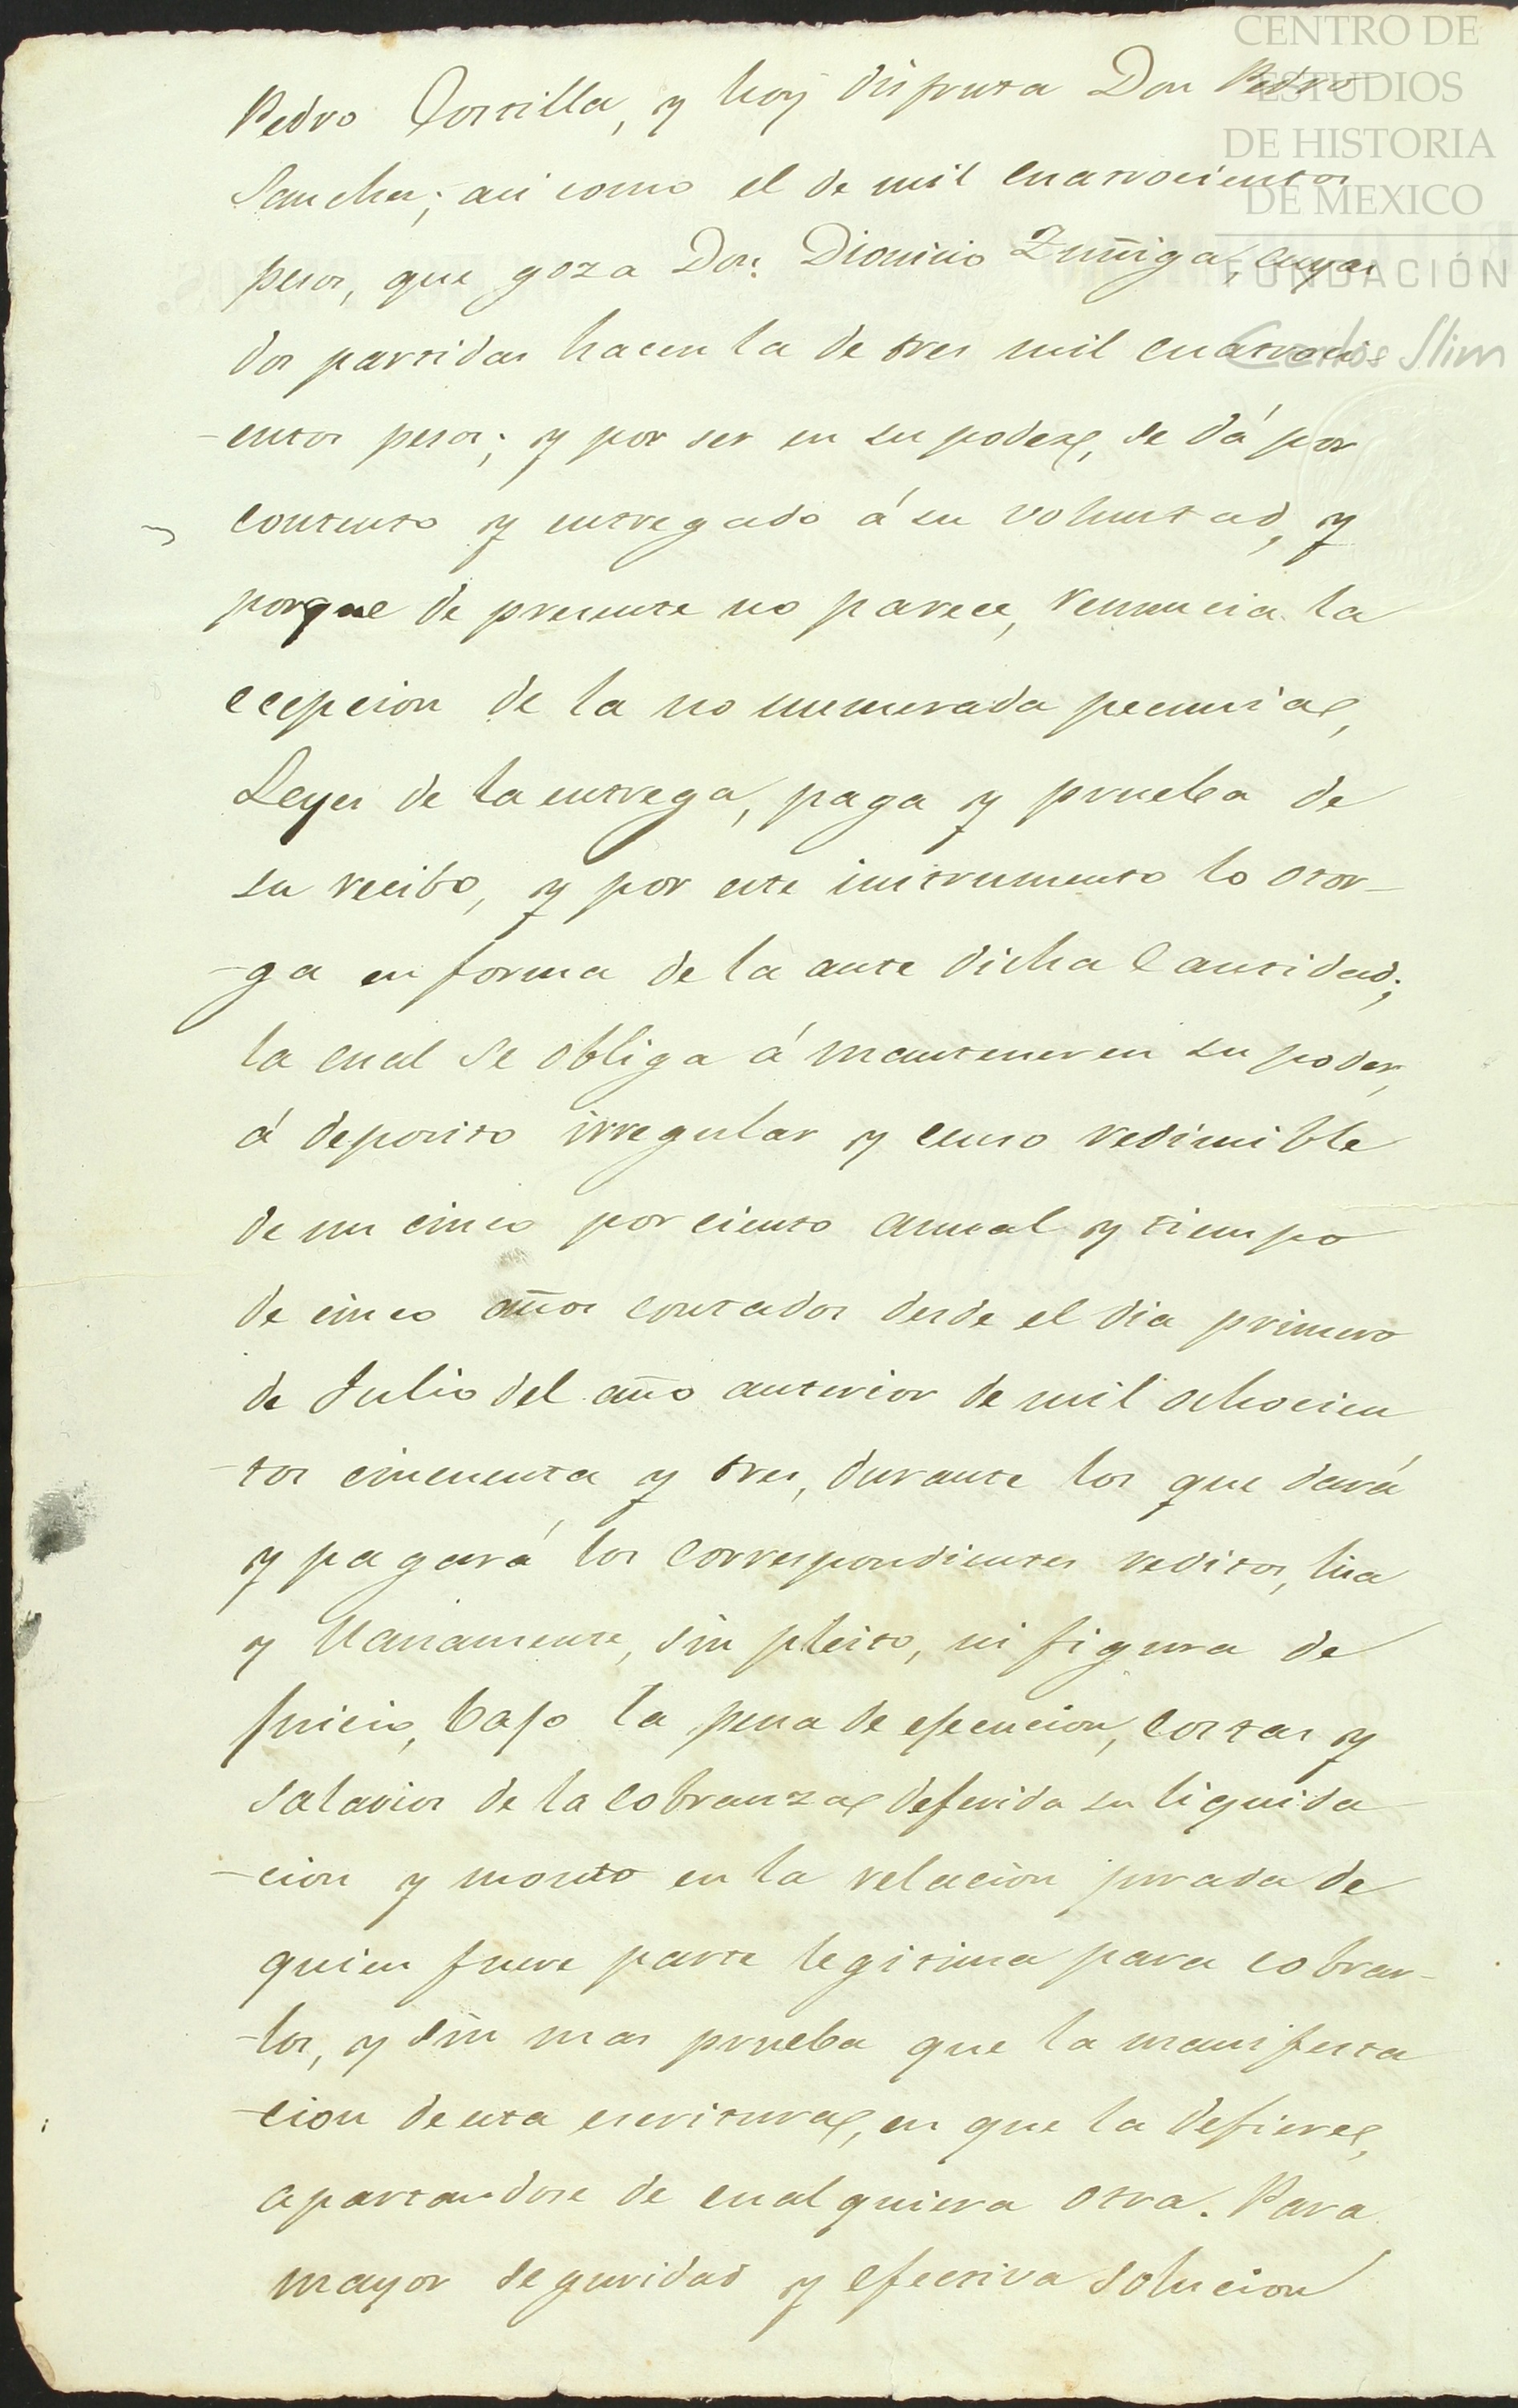 CENTRO DE
ESTUDIOS
DE HISTORIA
DE MEXICO
FUNDACIÓN
Carlos Slim
Pedro Torrilla, y hoy disfruta Don Pedro
Sanchez; asi como el de mil cuatrocientos
pesos, que goza Don Dionicio Zuñiga, cuyas
dos partidas hacen la de tres mil cuatroci-
-entos pesos; y por ser en su poder, se dá por
contento y entregado á su voluntad, y
porque de presente no parece, renuncia la
ecepcion de la no numerada pecunia,
Leyes de la entrega, paga y prueba de
su recibo, y por este instrumento lo otor-
-ga en forma de la ante dicha Cantidad;
la cual se obliga á mantener en su poder,
á deposito irregular y censo redimible
de un cinco por ciento anual y tiempo
de cinco años contados desde el dia primero
de Julio del año anterior de mil ochocien
-tos cincuenta y tres, durante los que dará
y pagará los correspondientes reditos, lisa
y llanamente, sin pleito, ni figura de
juicio, bajo la pena de ejecucion, costas y
salarios de la cobranza, deferida su liquida
-cion y monto en la relacion jurada de
quien fuere parte legitima para cobrar-
-los, y sin mas prueba que la manifesta
-cion de esta escritura, en que la defiere,
apartandose de cualquiera otra. Para
mayor seguridad y efectiva solucion